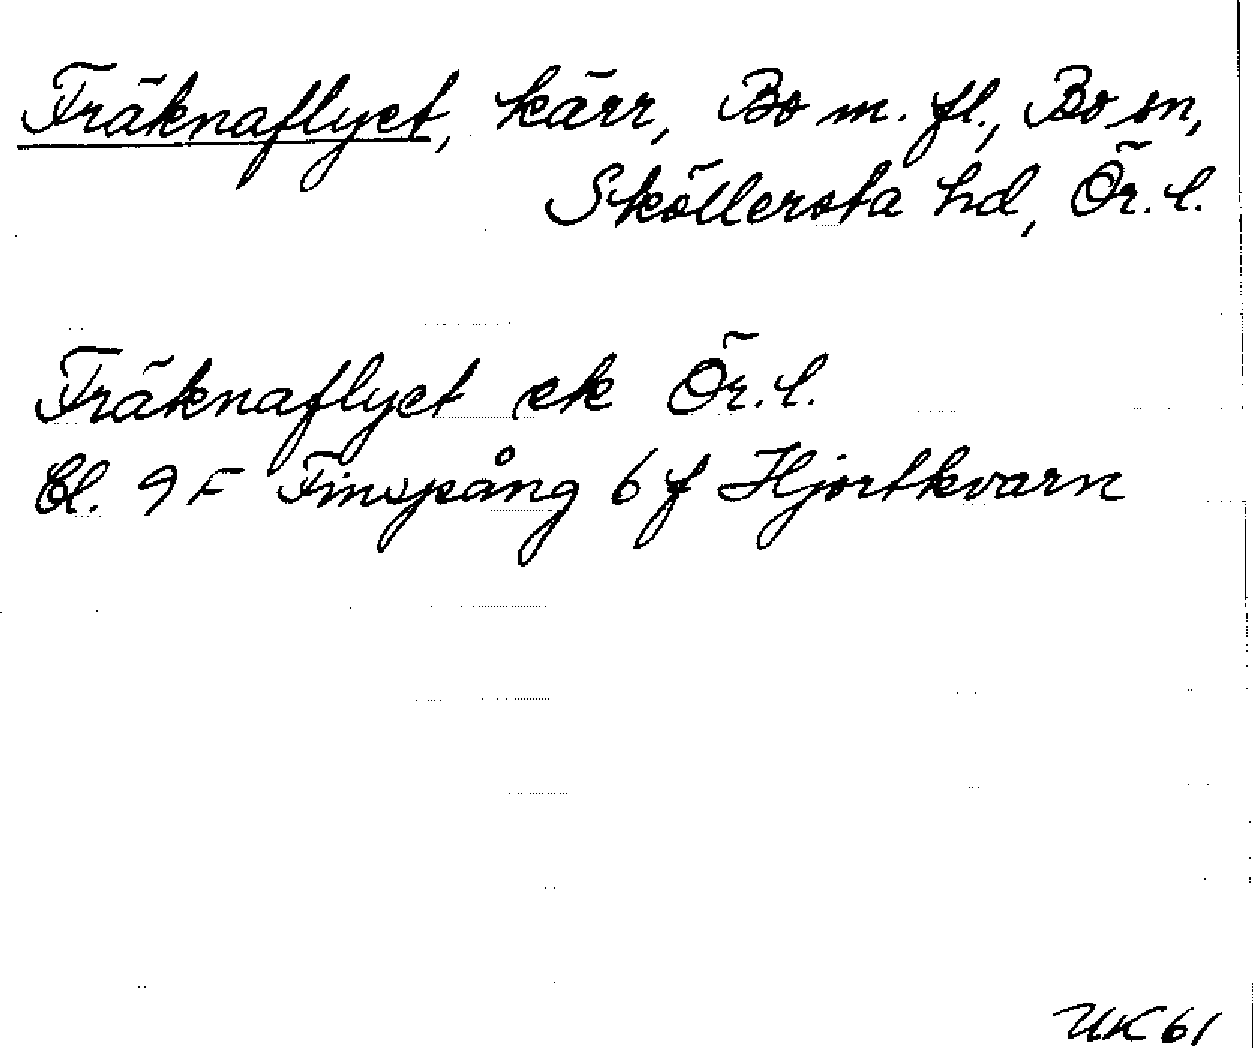 Fräknaflyet, kärr, Bo m. fl., Bo sn,
Sköllersta hd, Ör. l.
Fräknaflyet ek Ör. l.
Bl. 9 F Finspång 6 f Hjortkvarn
UK 61